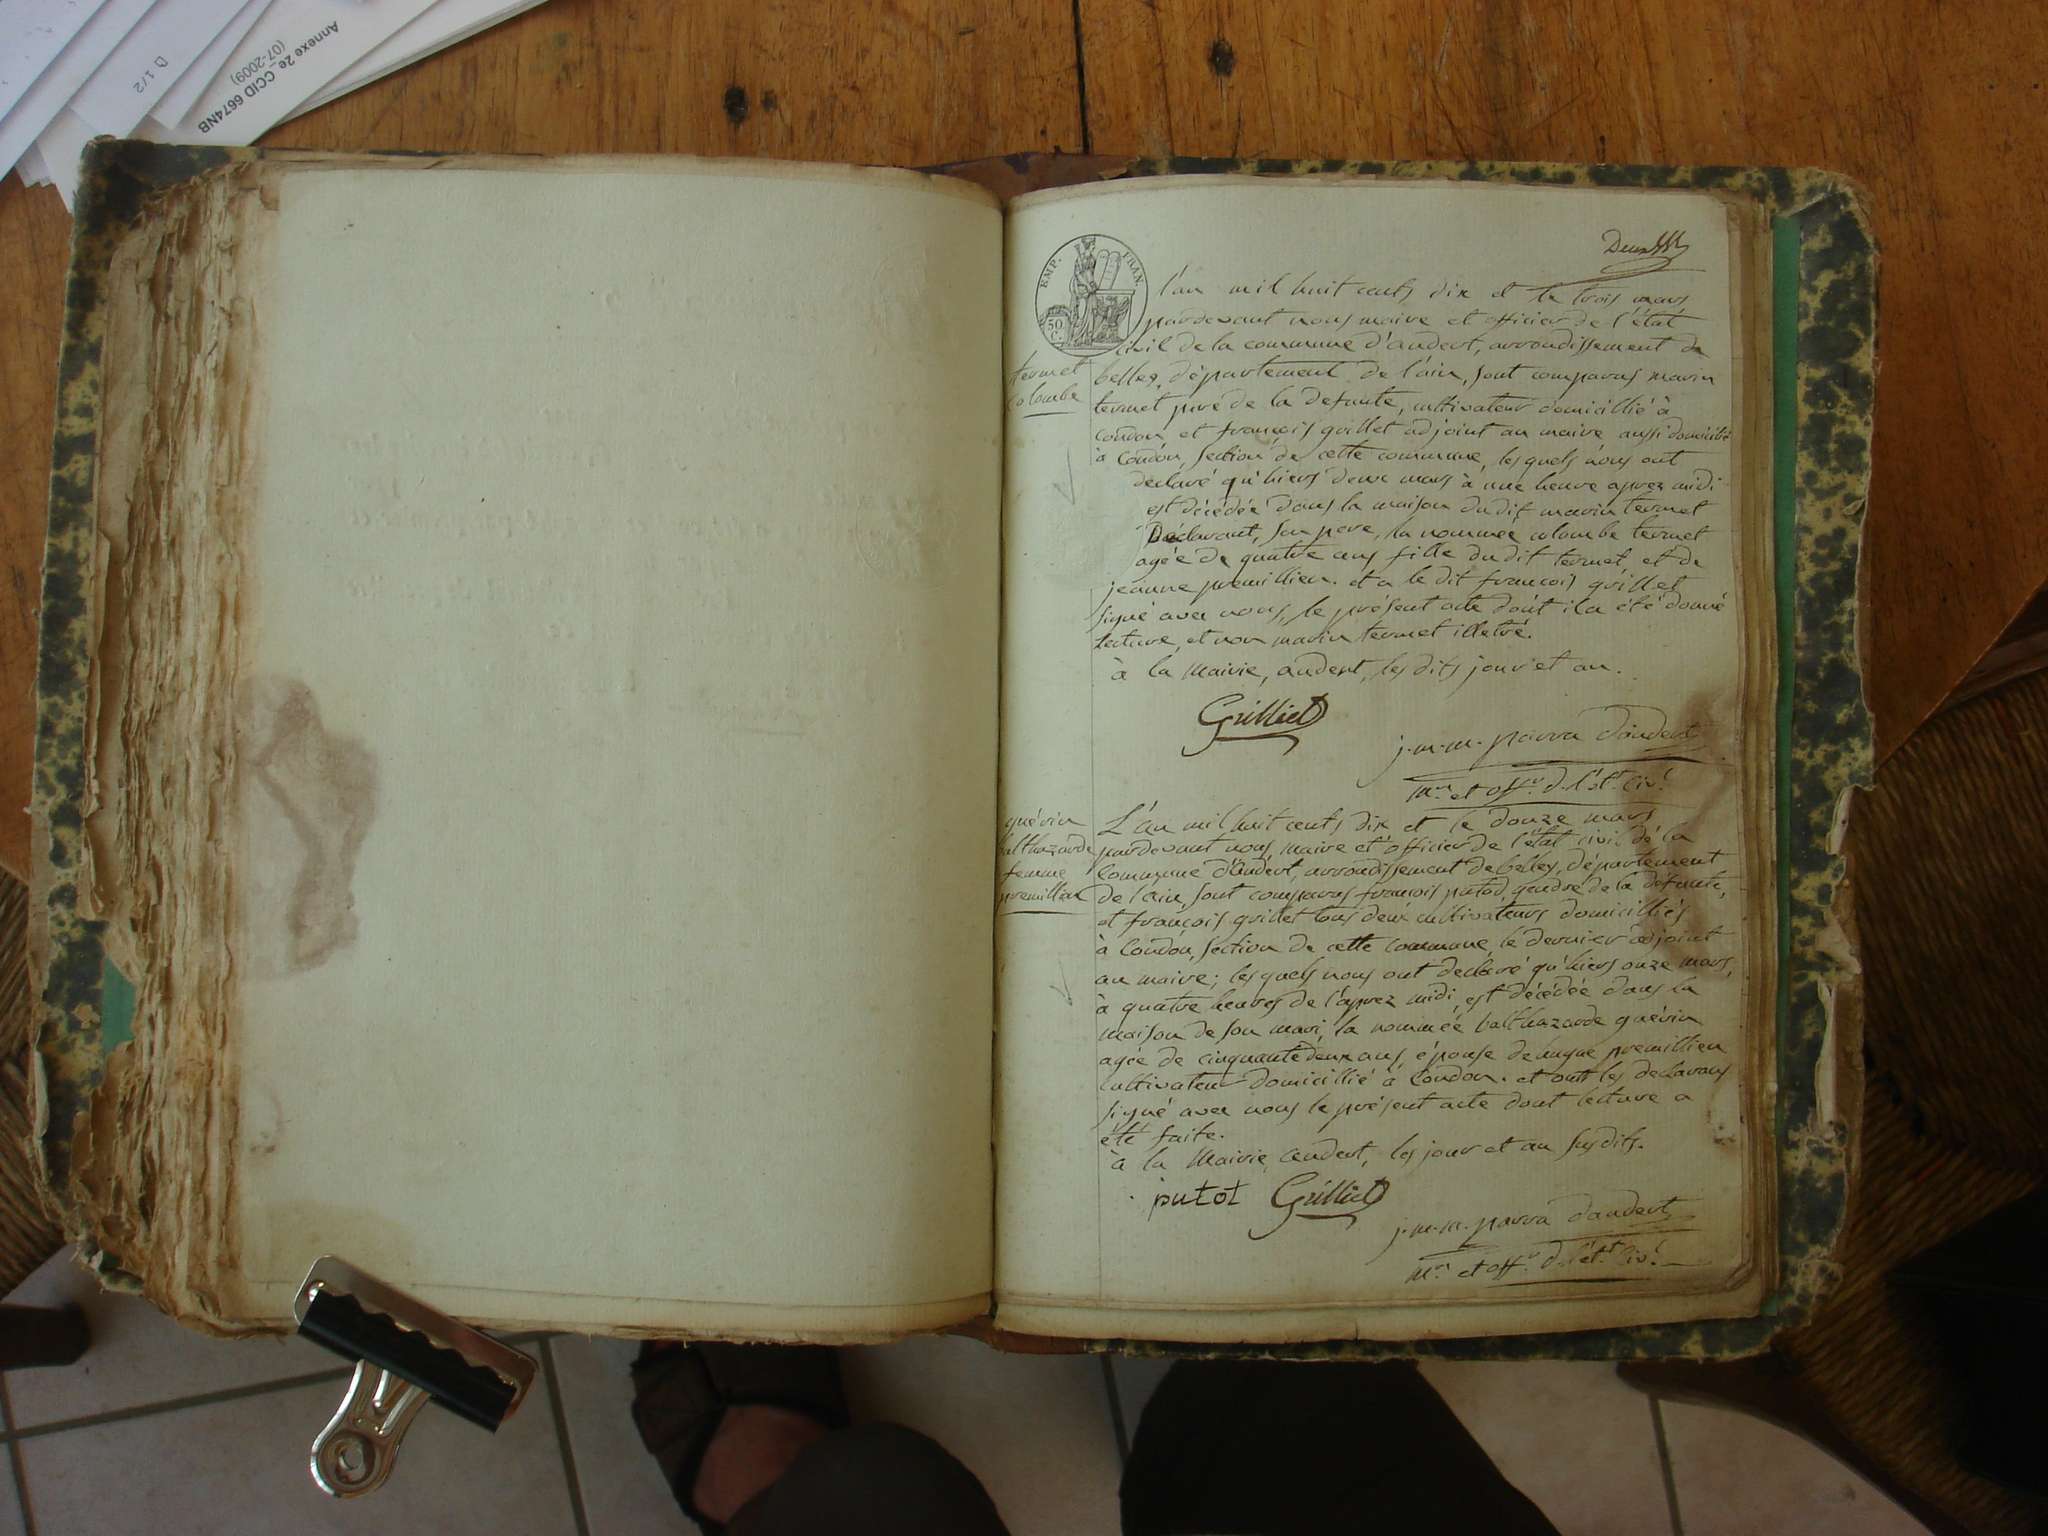 Annexe 2e_CCID 6674NB
(07-2009)
D 1/2
Deux
EMP. FRAN.
50
C.
l'an mil huit cents dix et le trois mars
pardevant nous maire et officier de l'état
civil de la commune d'andert, arrondissement de
belley, département de l'ain, sont comparus marin
termet pere de la defunte, cultivateur domicillié à
condon, et françois grillet adjoint au maire aussi domicilié
à Condon, section de cette commune, les quels nous ont
declaré qu'hiers deux mars à une heure aprez midi
est décédée dans la maison du dit marin termet
Déclarant, son pere, la nommée colombe termet
agée de quatre ans fille du dit termet, et de
jeanne premillieu. et a le dit françois grillet
signé avec nous, le présent acte dont il a été donné
lecture, et non marin termet illetré.
à la Mairie, andert, les dits jour et an.
termet
colombe
Grilliet
j. m. m. parra d'andert
m.re et off.r d. l'ét.t civ.l
guérin
balthazarde
femme
premillieu
L'an mil huit cents dix et le douze mars
pardevant nous, maire et officier de l'état civil de la
Commune d'Andert, arrondissement de belley, département
de l'ain, sont comparus françois putod, gendre de la défunte,
et françois grillet tous deux cultivateurs domicilliés
à Condon, section de cette commune, le dernier adjoint
au maire; les quels nous ont declaré qu'hiers onze mars,
à quatre heures de l'aprez midi, est décédée dans la
maison de son mari, la nommée balthazarde guérin
agée de cinquante deux ans, épouse de hugue premillieu
cultivateur domicillié à Condon. et ont les declarans
signé avec nous le présent acte dont lecture a
été faite.
à la Mairie, andert, les jour et an susdits.
putot Grilliet
j. m. m. parra d'andert
m.re et off.r d. l'ét.t civ.l